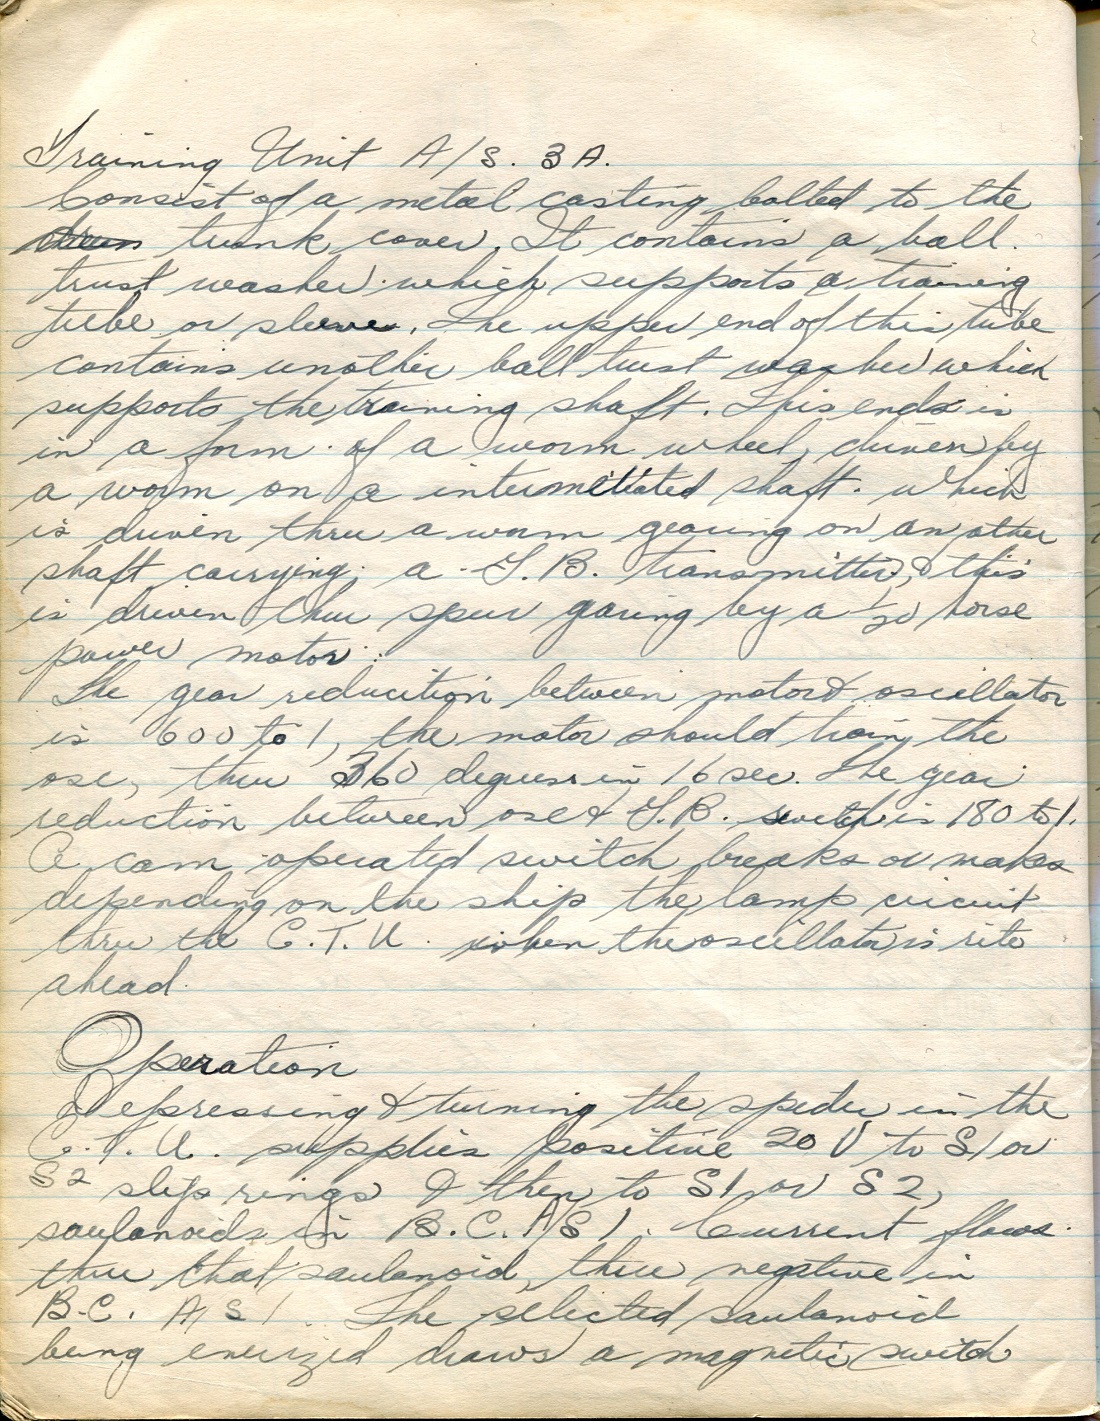 Training Unit A/S. 3A.
Consist of a metal casting bolted to the
trunk cover. It contains a ball.
trust washer which supports a training
tube or sleeve. The upper end of this tube
contains another ball trust washer which
supports the training shaft. This ends is
in a form of a worm wheel, driven by
a worm on a intermitiated shaft. which
is driven thru a worm gearing on an other
shaft carrying; a T.B. transmitter, & this
is driven thru spur garing by a 1/20 horse
power motor.
The gear reducition between motor & oscillator
is 600 to 1, the motor should train the
osc, thru 360 degrees in 16 sec. The gear
reduction between osc & T.B. switch is 180 to 1.
A cam operated switch breaks or makes
depending on the ship the lamp circuit
thru the C.T.U. when the oscillator is rite
ahead.
Operation
Depressing & turning the spider in the
C.T.U. supplies positive 20 V to S1 or
S2 slip rings & then to S1 or S2,
saulanoids in B.C. A/S 1. Current flows.
thru that saulanoid, thru negative in
B.C. A/S 1. The selected saulanoid
being enerized draws a magnetic switch